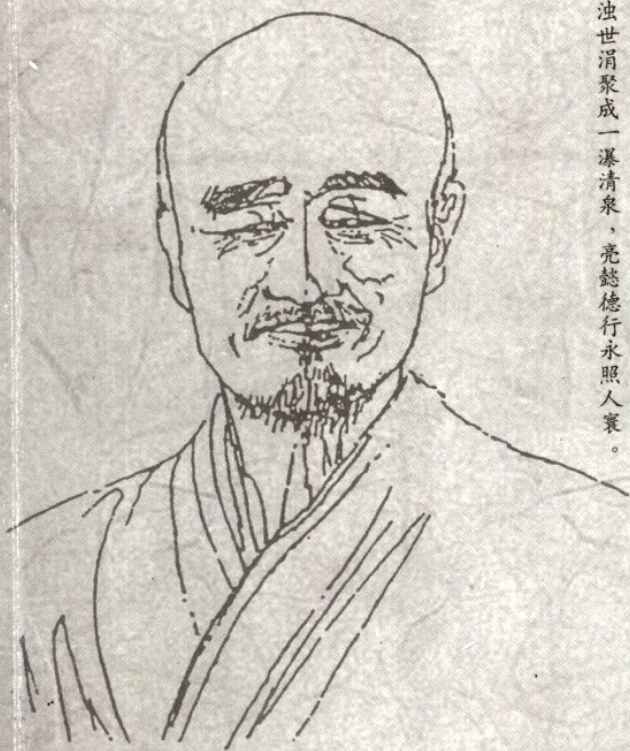 浊世涓聚成一瀑清泉，亮懿德行永照人寰。